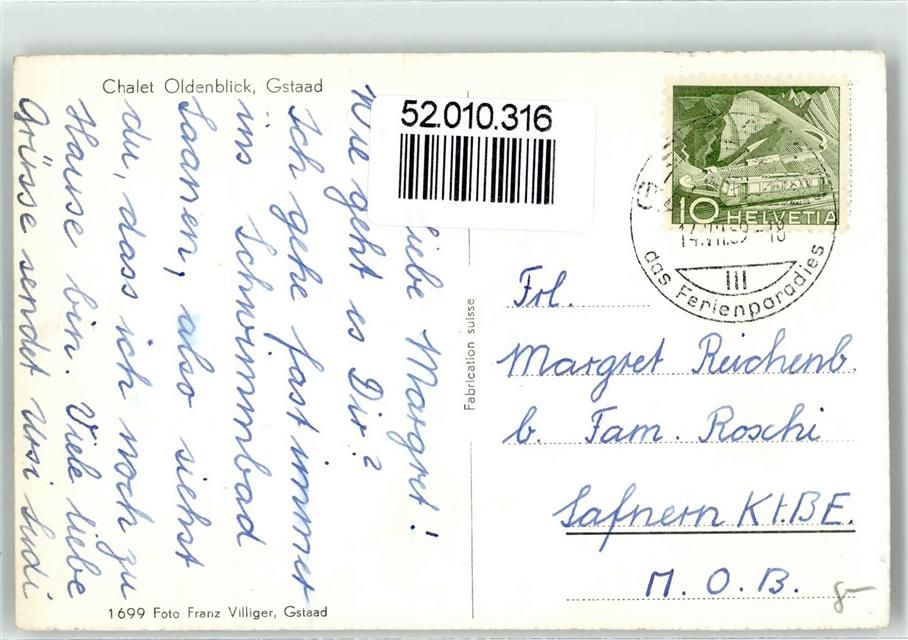 Chalet Oldenblick, Gstaad
52.010.316
liebe Margret!
Wie geht es Dir?
Ich gehe fast immer
ins Schwimmbad
Saanen, also siehst
du, dass ich noch zu
Hause bin. Viele liebe
Grüsse sendet Ursi
1699 Foto Franz Villiger, Gstaad
Fabrication suisse
10 HELVETIA
14.VII.59-18
das Ferienparadies
Frl.
Margret Reichenb.
b. Fam. Roschi
Safnern Kt.BE.
M.O.B.
8-